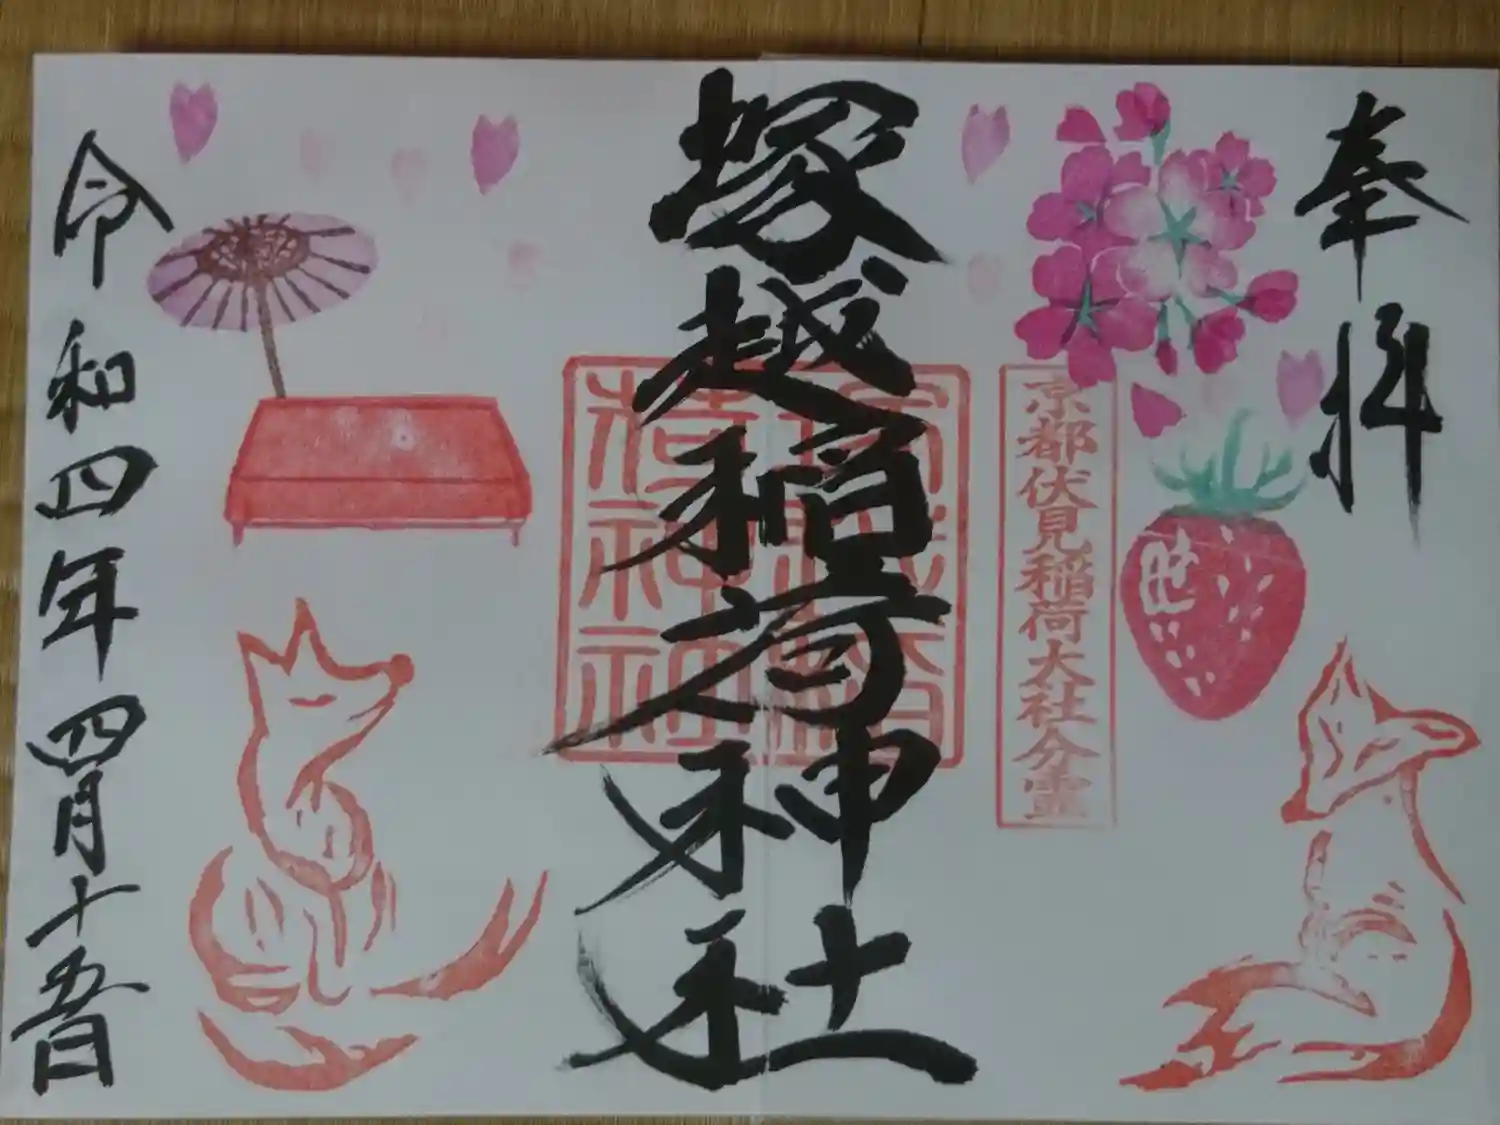 奉拝
京都伏見稲荷大社分霊
塚越稲荷神社
塚越稲
荷神社
令和四年四月十五日